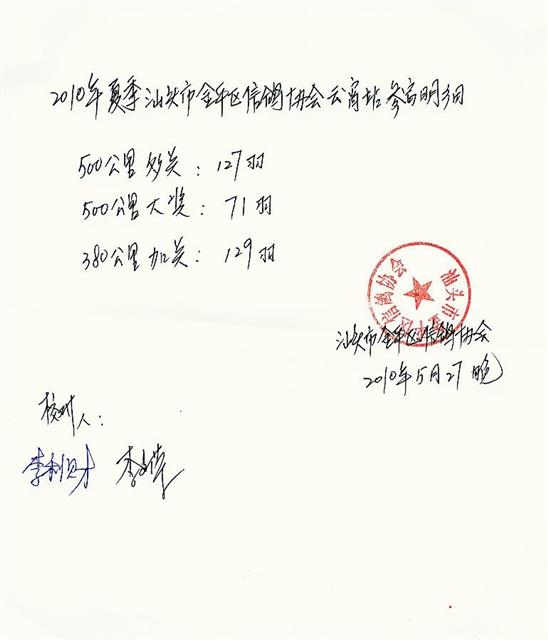 2010年夏季汕头市金平区信鸽协会云霄站参赛明细
500公里多关：127羽
500公里大奖：71羽
380公里加关：129羽
汕头市金平区信鸽协会
汕头市金平区信鸽协会
2010年5月27晚
核对人：
李利